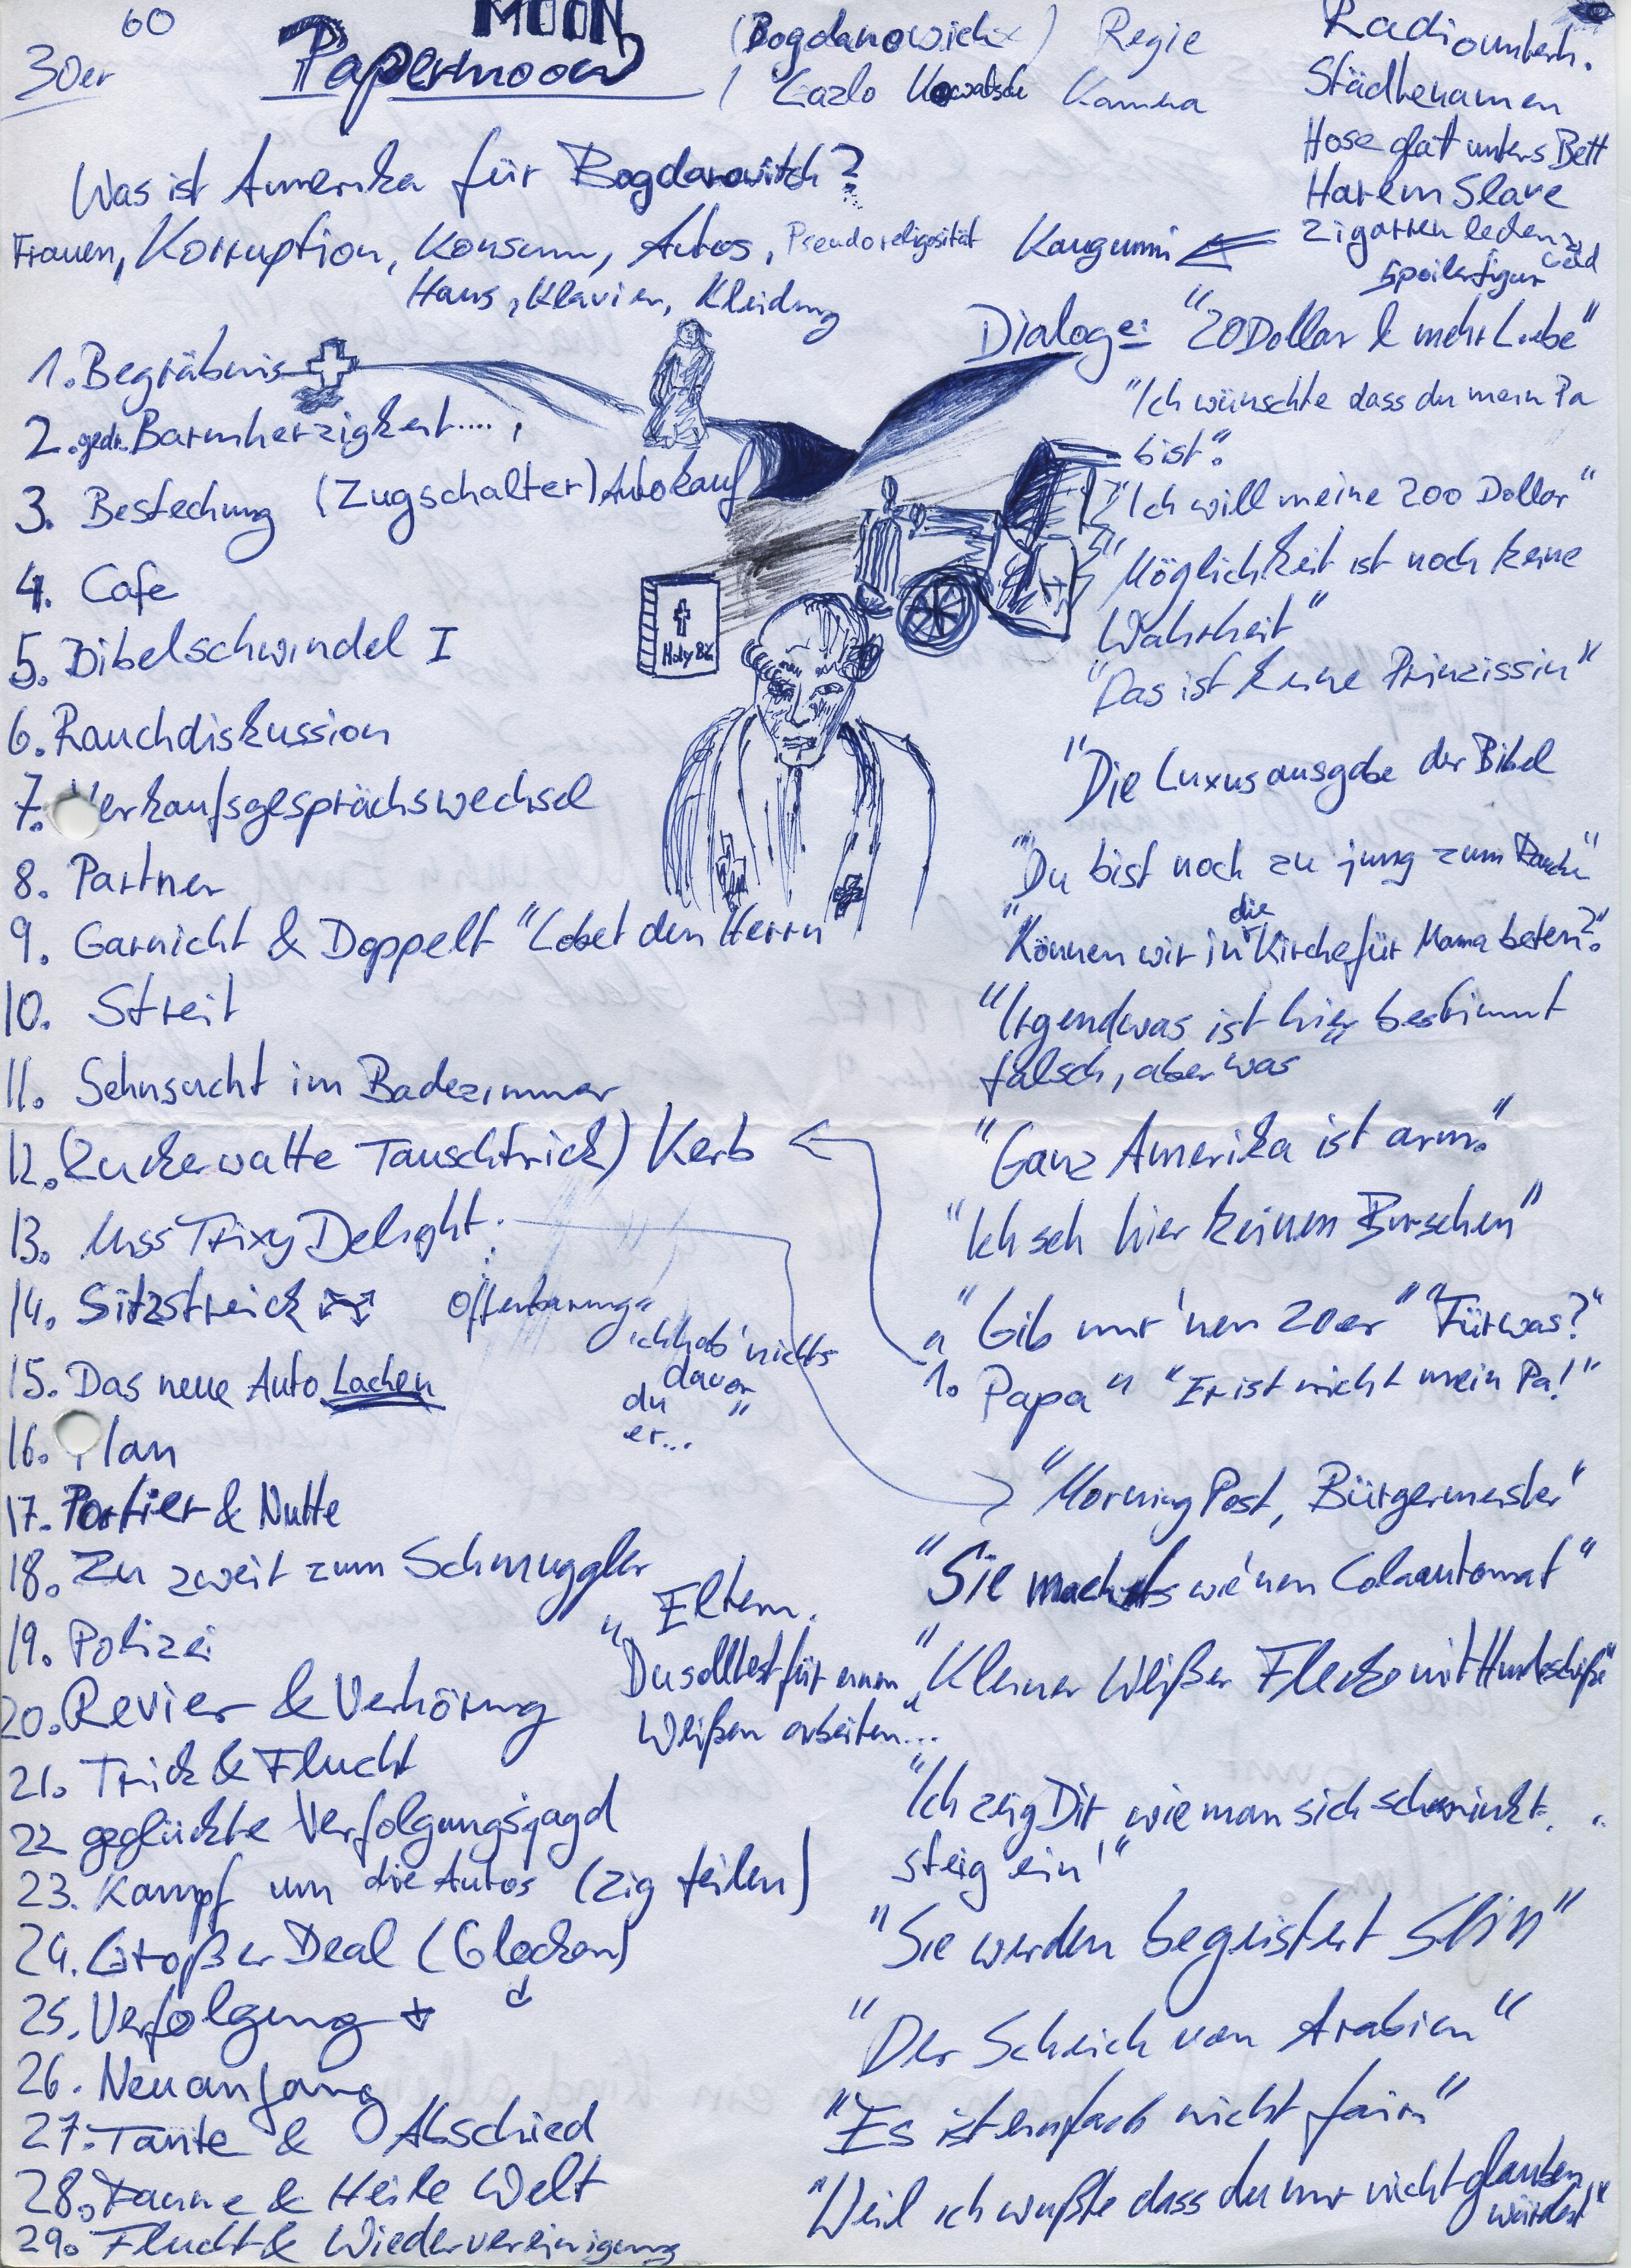 60
30er
MOON
Papermoon
(Bogdanowich) Regie
/ Lazlo Kowatsch Kamera
Radiounterh.
Städtenamen
Hose glatt unters Bett
Harem Slave
Zigarren leden
Geld
Spoilerfigur
Was ist Amerika für Bogdanowitch?
Frauen, Korruption, Konsum, Autos, Pseudoreligiosität Kaugummi
Haus, Klavier, Kleidung
1. Begräbnis
2. Barmherzigkeit....,
3. Bestechung (Zugschalter) Autokauf
4. Cafe
5. Bibelschwindel I
6. Rauchdiskussion
7. Verkaufsgesprächswechsel
8. Partner
9. Garnicht & Doppelt "Lobet den Herrn"
10. Streit
11. Sehnsucht im Badezimmer
12. (Zuckerwatte Tauschtrick) Kerb
13. Miss Trixy Delight
14. Sitzstreick
Offenbarung "
ich hab' nichts
davon
du "
er...
15. Das neue Auto Lachen
16. Plan
17. Portier & Nutte
18. Zu zweit zum Schmuggler
19. Polizei
20. Revier & Verhörung
21. Trick & Flucht
22 geglückte Verfolgungsjagd
23. Kampf um die Autos (Zig teilen)
24. Großer Deal (Glocken)
25. Verfolgung
26. Neuanfang
27. Tante & Abschied
28. Tanne & Heile Welt
29. Flucht & Wiedervereinigung
Holy Bib
Dialoge: "20 Dollar & mehr Liebe"
"Ich wünschte dass du mein Pa
bist."
"Ich will meine 200 Dollar"
"Möglichkeit ist noch keine
Wahrheit"
"Das ist keine Prinzissin"
"Die Luxusausgabe der Bibel
"Du bist noch zu jung zum Rauchen"
"Können wir in die Kirche für Mama beten?"
"Irgendwas ist hier bestimmt
falsch, aber was"
"Ganz Amerika ist arm."
"Ich seh hier keinen Burschen"
"Gib mir 'nen 20er" "Für was?"
1. Papa" "Er ist nicht mein Pa!"
"Morning Post, Bürgermeister"
"Sie machts wie 'nen Colaautomat"
Eltern.
"Du solltest für einen
Weißen arbeiten"...
"Kleiner Weißer Fleck mit Hundescheiße"
"Ich zeig Dir wie man sich schminkt.
steig ein!"
"Sie werden begeistert sein"
"Der Scheich von Arabien"
"Es ist einfach nicht fair"
"Weil ich wußte dass du mir nicht glauben
würdest"